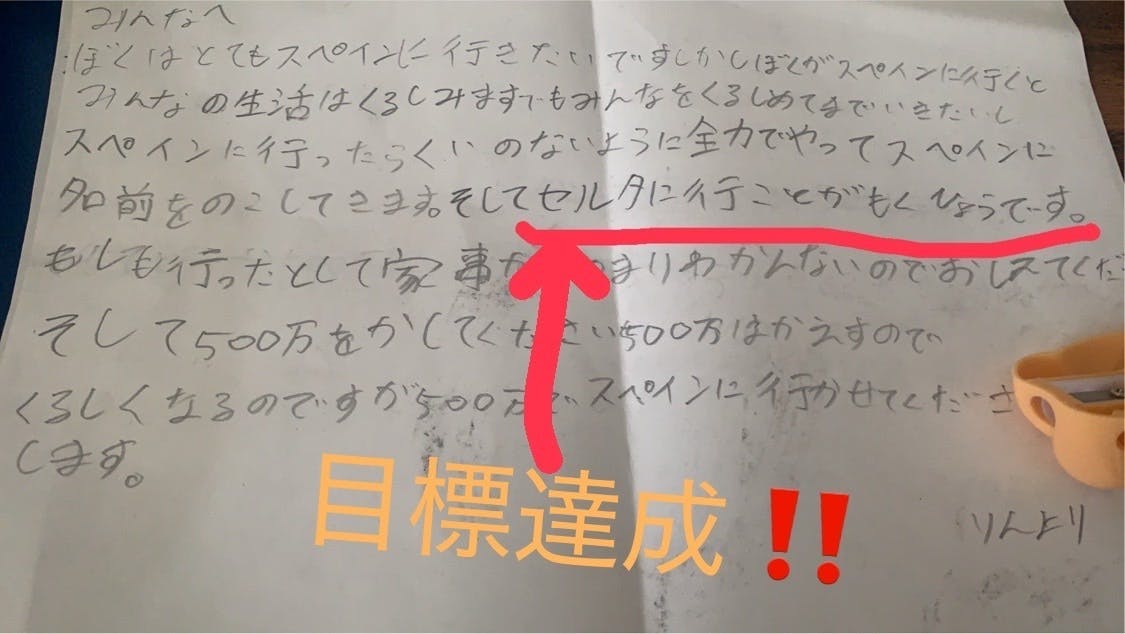 みんなへ
ぼくはとてもスペインに行きたいですしかしぼくがスペインに行くと
みんなの生活はくるしみますでもみんなをくるしめてまでいきたいし
スペインに行ったらくいのないように全力でやってスペインに
名前をのこしてきます。そしてセルタに行ことがもくひょうです。
もしも行ったとして家事が まりわかんないのでおしえてくだ
そして500万をかしてください500万はかえすので
くるしくなるのですが500万で スペインに行かせてくださ
します。
目標達成‼
りんより